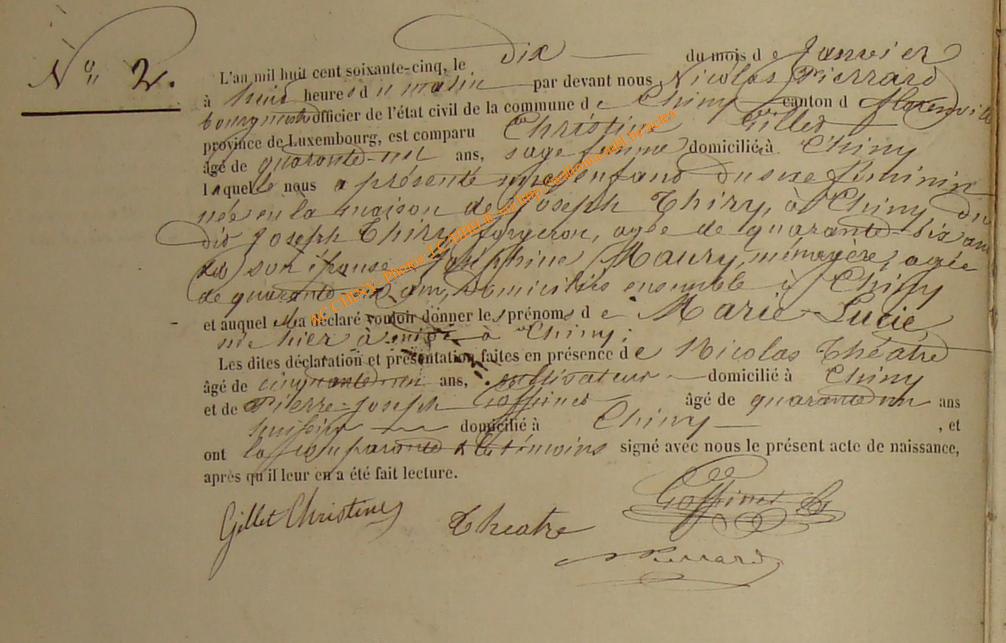 N° 2.
L'an mil huit cent soixante-cinq, le dix du mois de Janvier
à huit heures du matin par devant nous Nicolas Pierrard
bourgmestre officier de l'état civil de la commune de Chiny canton de Florenville
province de Luxembourg, est comparu Christine Gillet
âgé de quarante-un ans, sage femme domicilié à Chiny
laquelle nous a présenté un enfant du sexe féminin
née en la maison de Joseph Thiry, à Chiny du
dit Joseph Thiry forgeron, agé de quarante-six ans
et son épouse Joséphine Maury, ménagère, agée
de quarante ans, domiciliés ensemble à Chiny
et auquel elle a déclaré vouloir donner les prénoms de Marie-Lucie,
née hier à midi à Chiny;
Les dites déclaration et présentation faites en présence de Nicolas Théâtre
âgé de cinquante-un ans, cultivateur domicilié à Chiny
et de Pierre-Joseph Goffinet âgé de quarante-un ans
huissier domicilié à Chiny , et
ont la comparante & les témoins signé avec nous le présent acte de naissance,
après qu'il leur en a été fait lecture.
Gillet Christine Theatre Goffinet
Pierrard